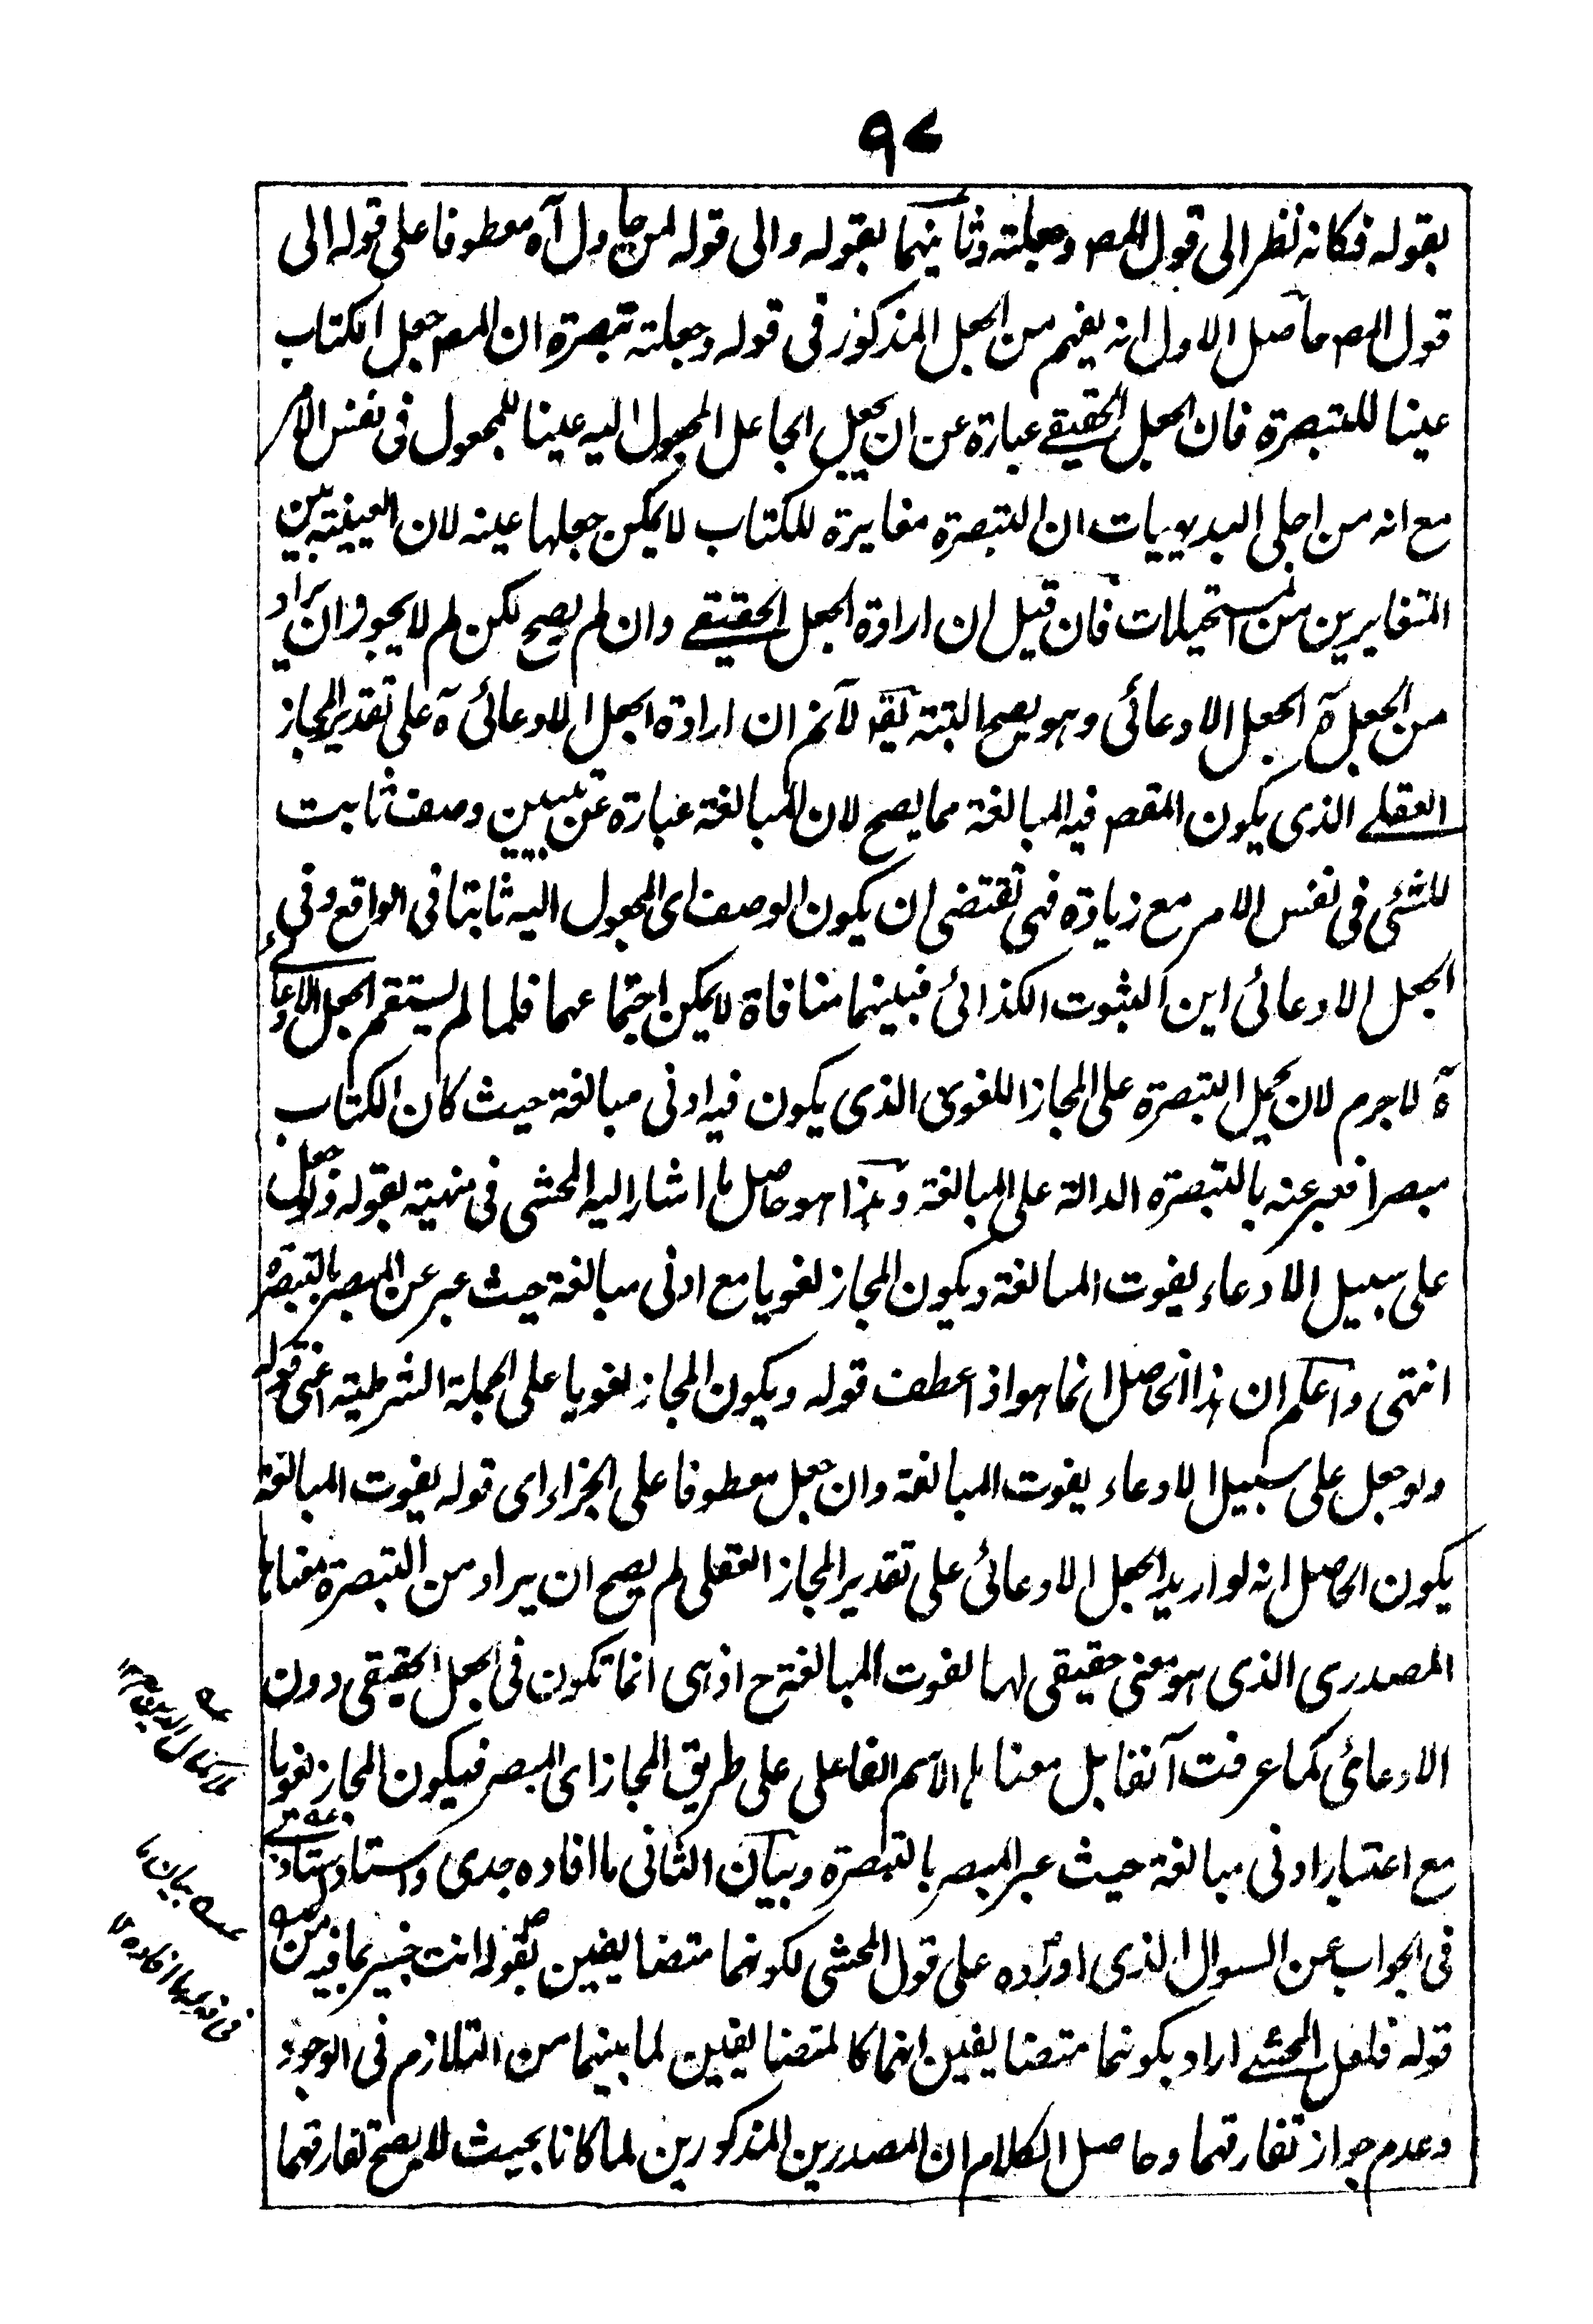 ٩٧
بقوله فكانه نظر الى قول المص وجعلته وثانيهما بقوله والى قوله لمن حاول آه معطوفا على قوله الى
قول المص حاصل الاول انه يفهم من الجعل المذكور فى قوله وجعلته تبصرة ان المص جعل الكتاب
عينا للتبصرة فان الجعل الحقيقے عبارة عن ان يجعل الجاعل المجعول اليه عينا للمجعول فى نفس الامر
مع انه من اجلى البديهييات ان التبصرة مغايرة للكتاب لا يمكن جعلها عينه لان العينية بين
المتغايرين من المستحيلات فان قيل ان ارادة الجعل الحقيقے وان لم يصح لكن لم لا يجوز ان يراد
من الجعل آه الجعل الادعائى وهو يصح البتة يقه لانم ان ارادة الجعل الادعائى آه على تقدير المجاز
العقلے الذى يكون المقص فيه المبالغة مما يصح لان المبالغة عبارة عن تبيين وصف ثابت
للشئ فى نفس الامر مع زيادة فهى تقتضى ان يكون الوصف اى المجعول اليه ثابتا فى الواقع وفى
الجعل الادعائى اين الثبوت الكذائى فبينهما منافاة لا يمكن اجتماعهما فلما لم يستقم الجعل الادعائے
آه لا جرم لان يحمل التبصرة على المجاز اللغوى الذى يكون فيه ادنى مبالغة حيث كان الكتاب
مبصرا فعبر عنه بالتبصرة الدالة على المبالغة وهذا هو حاصل ما اشار اليه المحشى فى منهيته بقوله ولو جعل
على سبيل الادعاء يفوت المبالغة ويكون المجاز لغويا مع ادنى مبالغة حيث عبر عن المبصر بالتبصرة
انتهى واعلم ان هذا الحاصل انما هو اذا عطف قوله ويكون المجاز لغويا على الجملة الشرطية اعنى قوله
ولو جعل على سبيل الادعاء يفوت المبالغة وان جعل معطوفا على الجزاء اى قوله يفوت المبالغة
يكون الحاصل انه لو اريد الجعل الادعائى على تقدير المجاز العقلى لم يصح ان يراد من التبصرة معناها
المصدرى الذى هو معنى حقيقى لها لفوت المبالغة ح اذ هى انما تكون فى الجعل الحقيقى دون
الادعائى كما عرفت آنفا بل معناها الاسم الفاعلى على طريق المجاز اى المبصر فيكون المجاز لغويا
مع اعتبار ادنى مبالغة حيث عبر المبصر بالتبصرة وبيان الثانى ما افاده جدى واستاد استادى
فى الجواب عن السوال الذى اورده على قول المحشى لكونهما متضايفين بقوله انت خبير بما فيه من
قوله فلعل المحشے اراد بكونهما متضايفين انهما كالمتضايفين لما بينهما من التلازم فى الوجود
وعدم جواز تفارقهما وحاصل الكلام ان المصدرين المذكورين لما كانا بحيث لا يصح تفارقهما
عه
عسه بيان ما